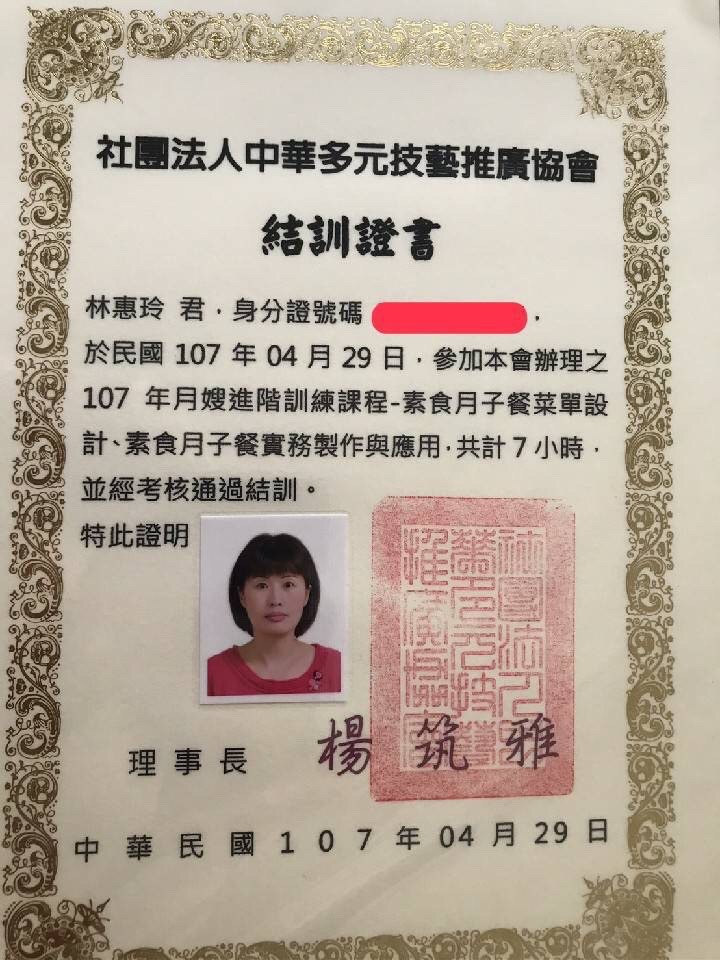 社團法人中華多元技藝推廣協會
結訓證書
林惠玲 君，身分證號碼
，
於民國 107 年 04 月 29 日，參加本會辦理之
107 年月嫂進階訓練課程-素食月子餐菜單設
計、素食月子餐實務製作與應用，共計 7 小時，
並經考核通過結訓。
特此證明
社團法人中華多元技藝推廣協會
理事長 楊筑雅
中華民國 107 年 04 月 29 日